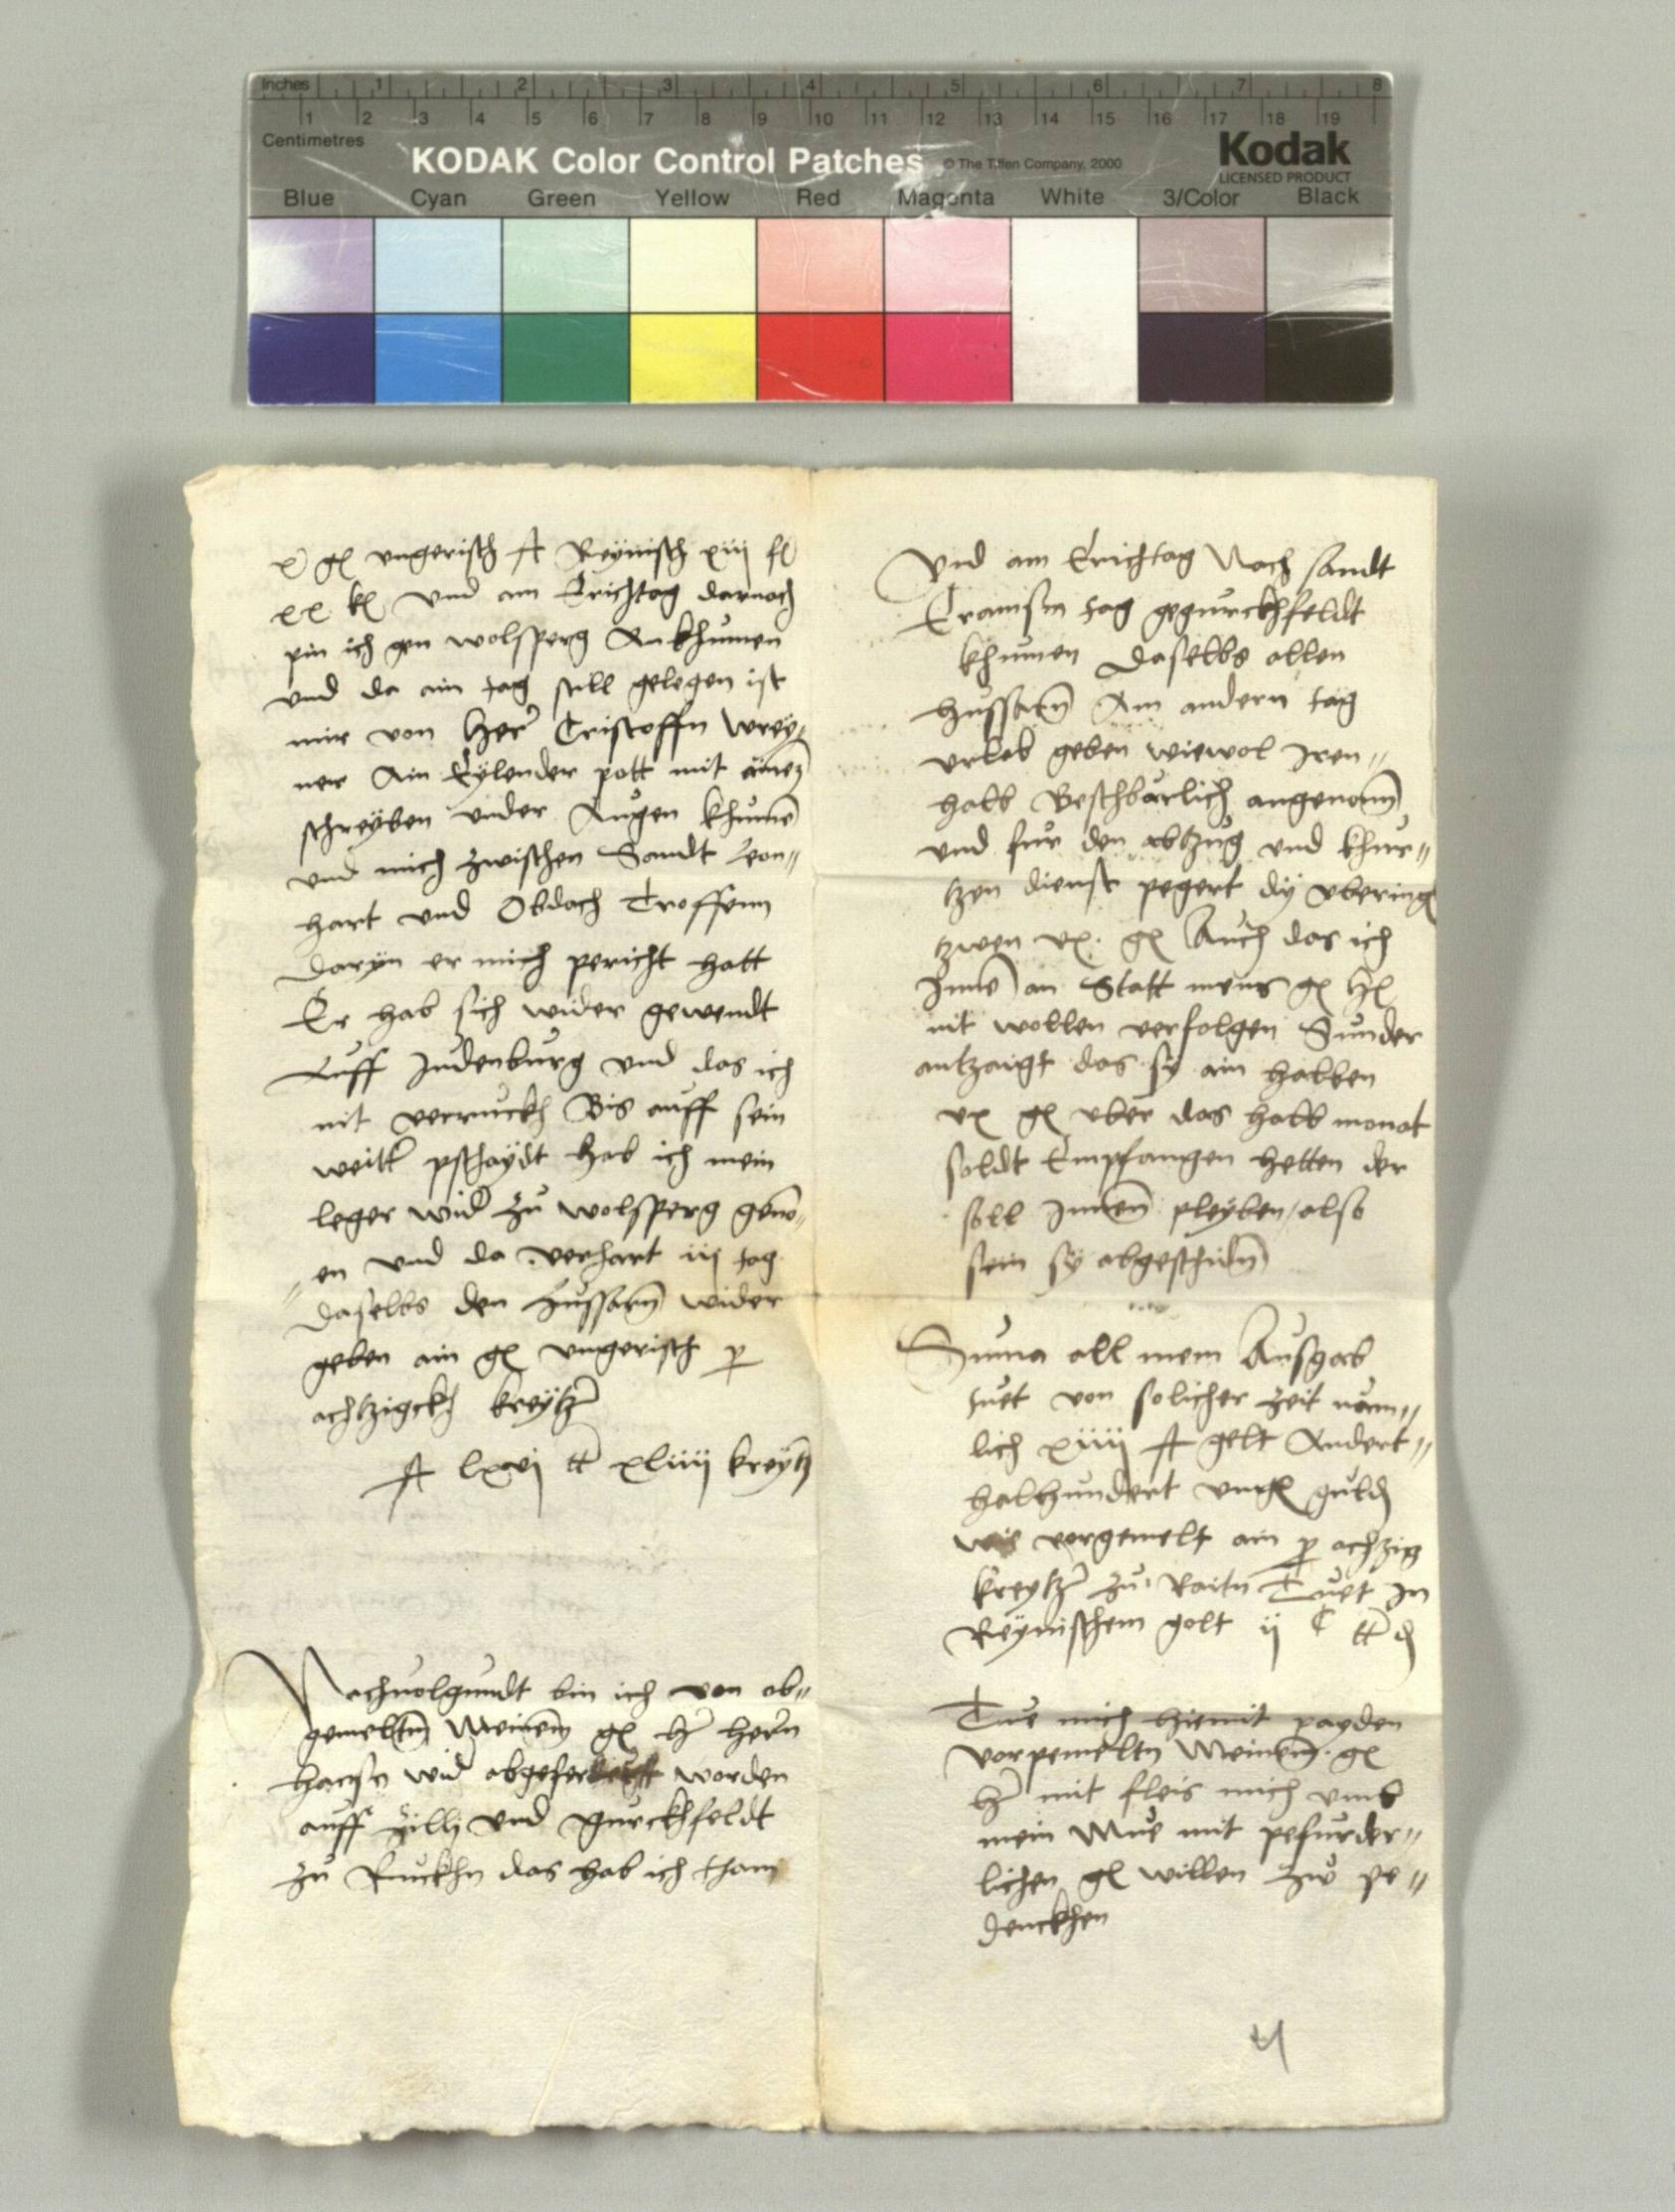 Inches 1 2 3 4 5 6 7 8
1 2 3 4 5 6 7 8 9 10 11 12 13 14 15 16 17 18 19
Centimetres
KODAK Color Control Patches © The Tiffen Company, 2000
Kodak
LICENSED PRODUCT
Blue Cyan Green Yellow Red Magenta White 3/Color Black
x gl vngerisch Reynisch xiij fl
xx kl vnd am Erichtag darnach
pin ich gen wolfsperg Ankhumen
vnd da ain tag still gelegen ist
mir von Her Cristoffn Wrey„
ner Ain Eylender pott mit
schreyben vnder Augen khumē
vnd mich zwischen Sandt leon„
hart vnd Obdach Troffenn
Daryn er mich pericht hatt
Er hab sich wider gewendt
Auff Judenburg vnd das ich
nit verruckh Bis auff sein
weitt pschaydt hab ich mein
leger wid zu wolfsperg genō„
„en vnd da verhart iij tag
Daselbs den Hussarn wider
geben ain gl vngerisch p
achtzigckh kreytz
lxvj tt xliiij kreytz
Nachuolgundt bin ich von ob„
gemeltn Meinem gl h hern
hansn wid worden
auff zilly vnd gurckhfeldt
zu Ruckhn das hab ich than
Vnd am Erichtag Nach sandt
Eramsm tag gegurckhfeldt
khumen Daselbs allen
hussarn Am andern tag
vrlab geben wiewol Iren„
halb angenomn
vnd fur den abtzug vnd khur„
tzen dienst pegert dy vbering
tzwen vx. gl Auch das ich
Inne an Statt meins gl hl
nit wollen verfolgen Sunder
antzaigt das sy ain halben
vx gl vber das halb monat
soldt Empfangen hetten der
soll Innen pleyben / also
sein sy abgeschidn
Suma all mein Ausgab
tuet von solicher zeit näm„
lich xiiij gelt Andert„
halbhundert vngl guld
wie vorgemelt ain p achzig
kreytz zu Raitn Tuet In
Reynischem golt ij C tt d
Tue mich hiemit payden
vorpemeltn Meinem gl
h mit fleis mich vmb
mein Mue mit pefurder„
lichen gl willen zw pe„
denckhen